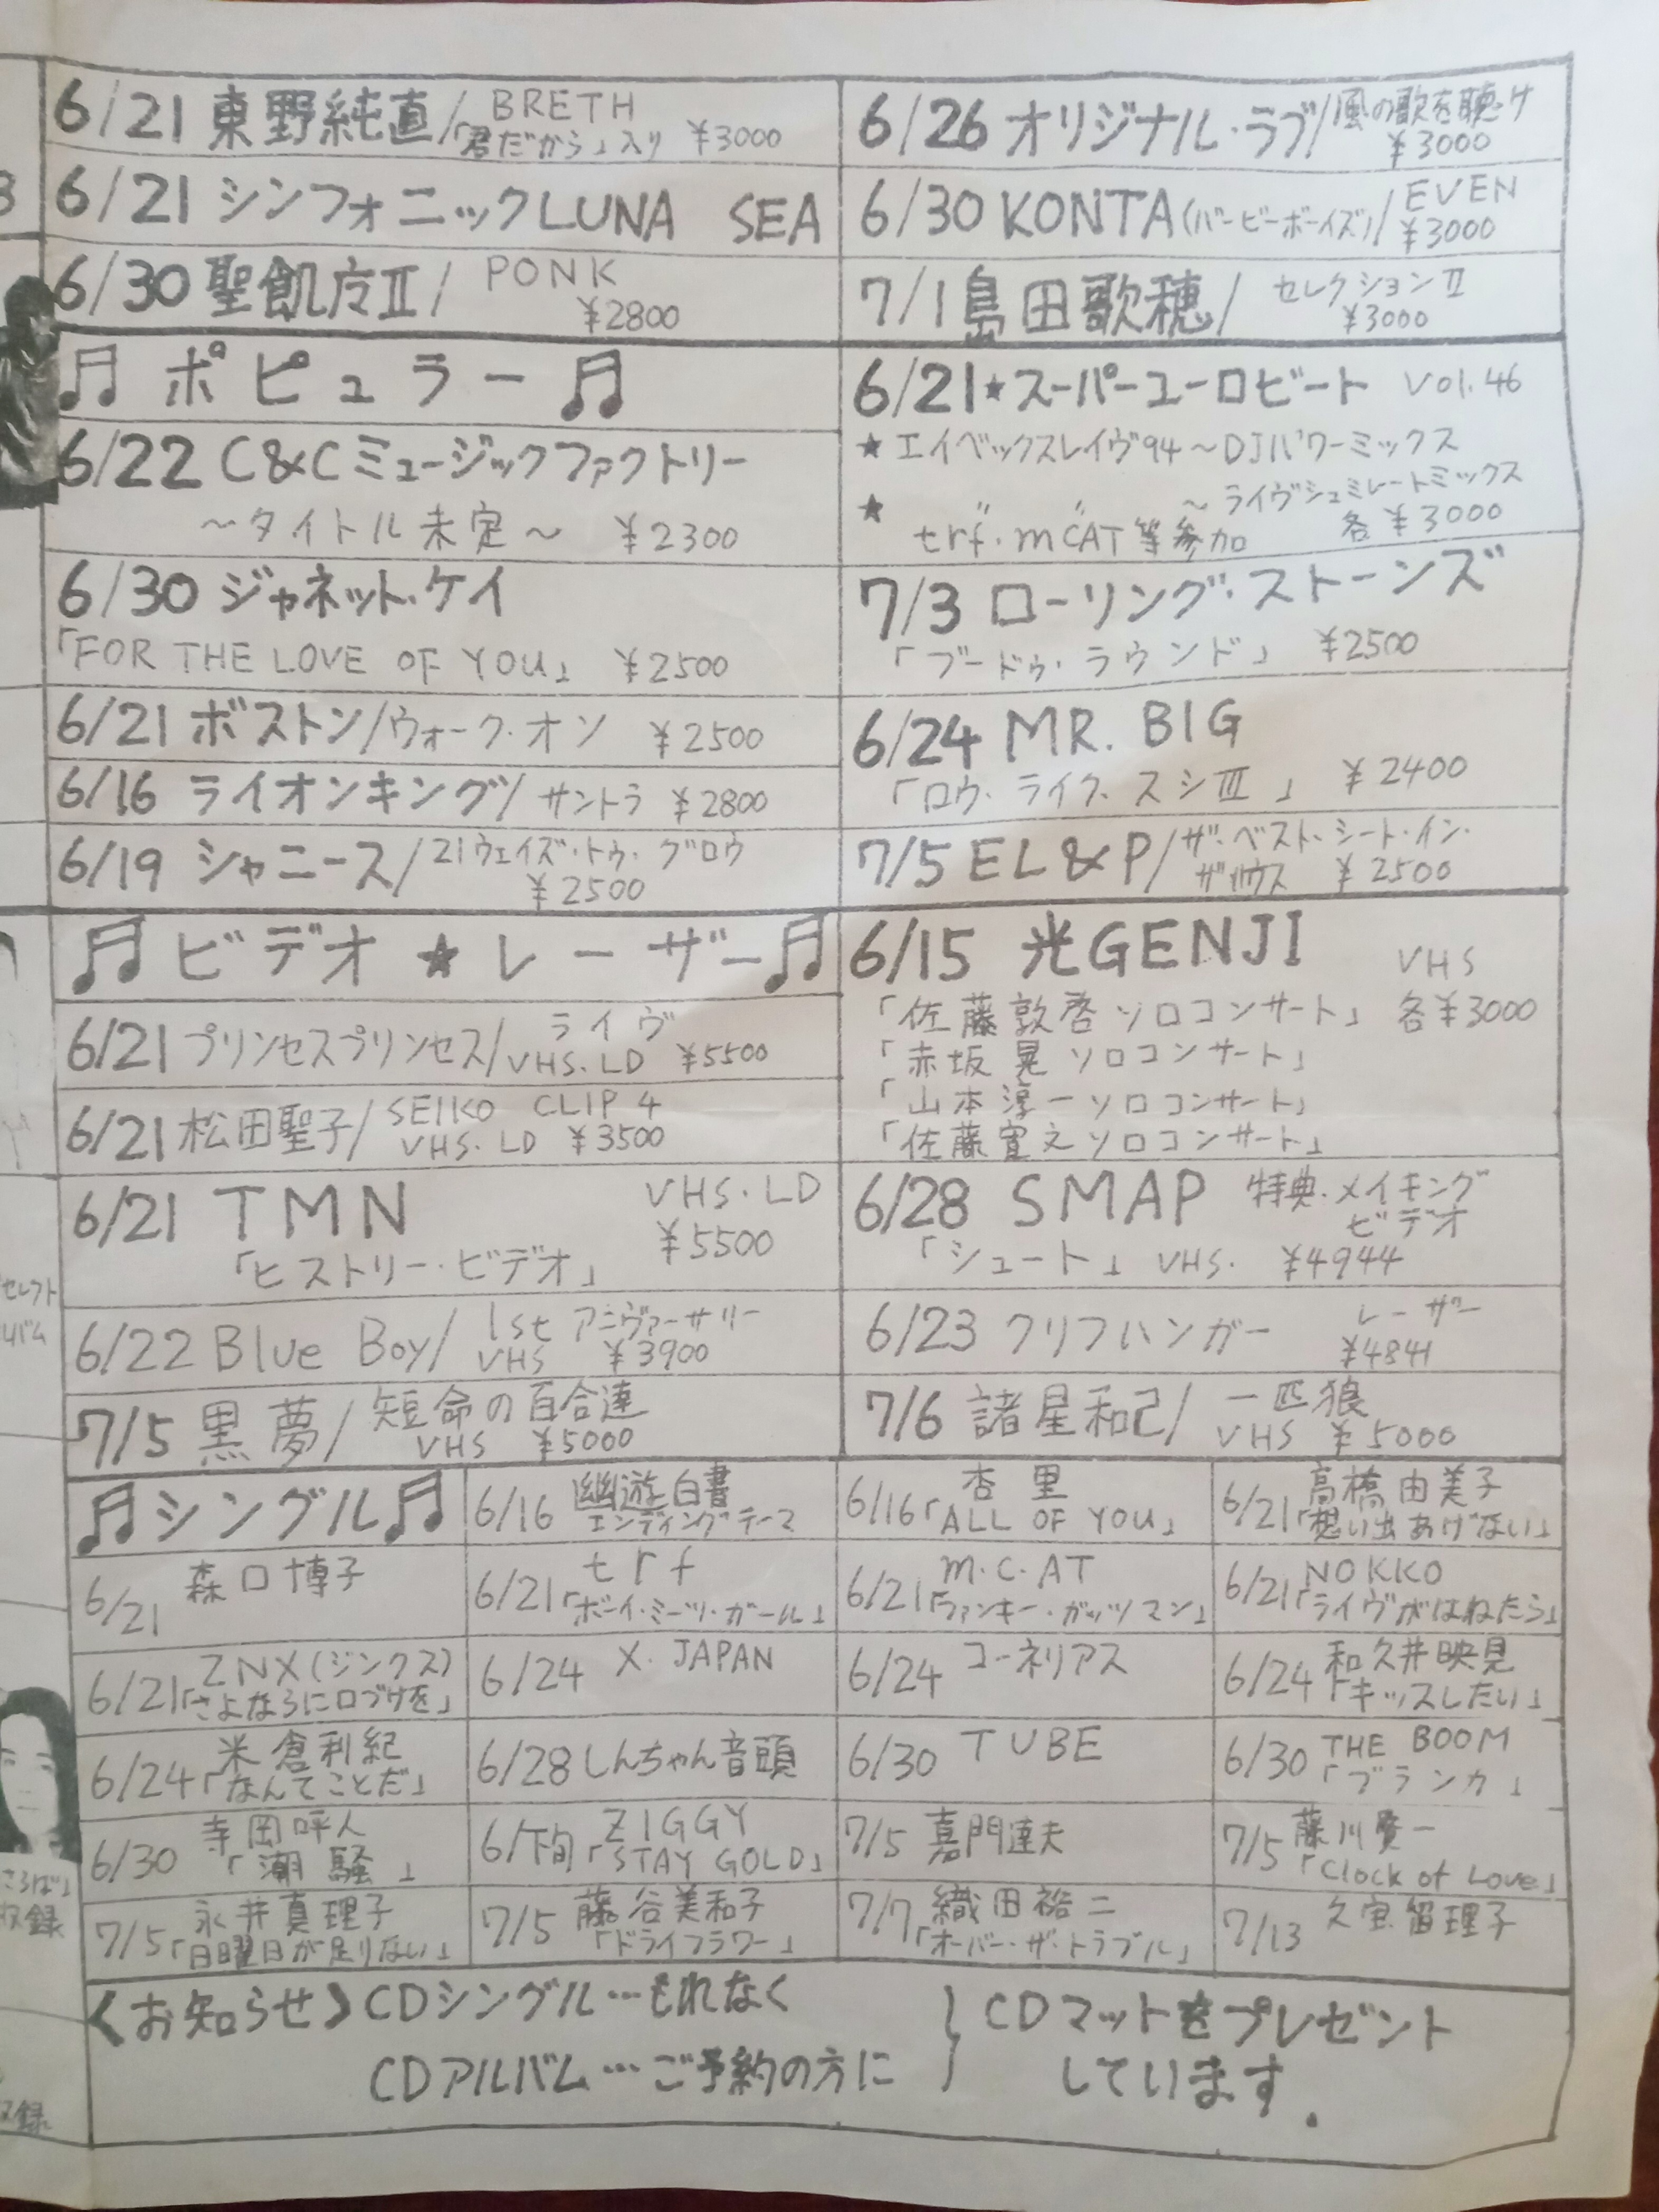 6/21 東野純直/BRETH
「君だから」入り ¥3000
6/21 シンフォニックLUNA SEA
6/30 聖飢魔Ⅱ/PONK
¥2800
6/26 オリジナル・ラブ/風の歌を聴け
¥3000
6/30 KONTA(バービーボーイズ)/EVEN
¥3000
7/1 島田歌穂/セレクションⅡ
¥3000
♫ ポピュラー ♫
6/22 C&Cミュージックファクトリー
～タイトル未定～ ¥2300
6/30 ジャネット・ケイ
「FOR THE LOVE OF YOU」 ¥2500
6/21 ボストン/ウォーク・オン ¥2500
6/16 ライオンキング/サントラ ¥2800
6/19 シャニース/21ウェイズ・トゥ・グロウ
¥2500
6/21★スーパーユーロビート Vol.46
★エイベックスレイヴ94～DJパワーミックス
★ 〃 〃 ～ライヴシュミレートミックス
trf・m.c.AT等参加 各¥3000
7/3 ローリング・ストーンズ
「ブードゥ・ラウンド」 ¥2500
6/24 MR. BIG
「ロウ・ライク・スシⅢ」 ¥2400
7/5 EL&P/ザ・ベスト・シート・イン・
ザ・ハウス ¥2500
♫ ビデオ★レーザー♫
6/21 プリンセスプリンセス/ライヴ
VHS.LD ¥5500
6/21 松田聖子/SEIKO CLIP 4
VHS.LD ¥3500
6/21 TMN VHS・LD
「ヒストリー・ビデオ」 ¥5500
6/22 Blue Boy/1st アニヴァーサリー
VHS ¥3900
7/5 黒夢/短命の百合達
VHS ¥5000
6/15 光GENJI VHS
「佐藤敦啓ソロコンサート」 各¥3000
「赤坂晃ソロコンサート」
「山本淳一ソロコンサート」
「佐藤寛之ソロコンサート」
6/28 SMAP 特典・メイキング
ビデオ
「シュート」 VHS. ¥4944
6/23 クリフハンガー レーザー
¥4841
7/6 諸星和己/一匹狼
VHS ¥5000
♫シングル♫
6/16 幽遊白書
エンディングテーマ
6/16 杏里
「ALL OF YOU」
6/21 高橋由美子
「想い出あげない」
6/21 森口博子
6/21 trf
「ボーイ・ミーツ・ガール」
6/21 m.c.AT
「ファンキー・ガッツマン」
6/21 NOKKO
「ライヴがはねたら」
6/21 ZNX(ジンクス)
「さよならに口づけを」
6/24 X.JAPAN
6/24 コーネリアス
6/24 和久井映見
「キッスしたい」
6/24 米倉利紀
「なんてことだ」
6/28 しんちゃん音頭
6/30 TUBE
6/30 THE BOOM
「ブランカ」
6/30 寺岡呼人
「潮騒」
6/下旬 ZIGGY
「STAY GOLD」
7/5 嘉門達夫
7/5 藤川賢一
「Clock of Love」
7/5 永井真理子
「日曜日が足りない」
7/5 藤谷美和子
「ドライフラワー」
7/7 織田裕二
「オーバー・ザ・トラブル」
7/13 久宝留理子
〈お知らせ〉CDシングル…もれなく
CDアルバム…ご予約の方に
}CDマットをプレゼント
しています.
セレクト
収録
収録